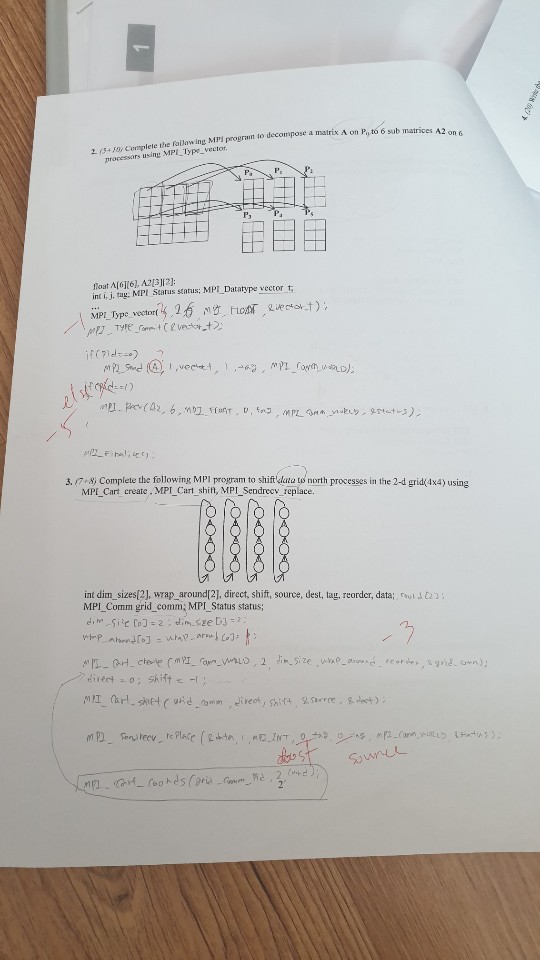 1
4. (20) Write the
2. (5+10) Complete the following MPI program to decompose a matrix A on P0 to 6 sub matrices A2 on 6
processors using MPI_Type_vector.
P0 P1 P2
P3 P4 P5
float A[6][6], A2[3][2];
int i, j, tag; MPI_Status status; MPI_Datatype vector_t;
...
MPI_Type_vector(3, 2, 6, MPI_FLOAT, &vector_t);
-1
MPI_Type_commit(&vector_t);
if(pid==0)
MPI_Send(A, 1, vector_t, 1, tag, MPI_COMM_WORLD);
else
if(pid==1)
MPI_Recv(A2, 6, MPI_FLOAT, 0, tag, MPI_COMM_WORLD, &status);
-5
MPI_Finalize();
3. (7+8) Complete the following MPI program to shift data to north processes in the 2-d grid(4x4) using
MPI_Cart_create , MPI_Cart_shift, MPI_Sendrecv_replace.
int dim_sizes[2], wrap_around[2], direct, shift, source, dest, tag, reorder, data; coord[2];
MPI_Comm grid_comm; MPI_Status status;
dim_size[0]=2; dim_size[1]=2;
wrap_around[0] = wrap_around[0]= 1;
-3
MPI_Cart_create(MPI_COMM_WORLD, 2, dim_size, wrap_around, reorder, &grid_comm);
direct = 0; shift = -1;
MPI_Cart_shift(grid_comm, direct, shift, &source, &dest);
MPI_Sendrecv_replace(&data, 1, MPI_INT, 0, tag, 0, tag, MPI_COMM_WORLD, &status);
dest source
MPI_Cart_coords(grid_comm, pid, 2,
2